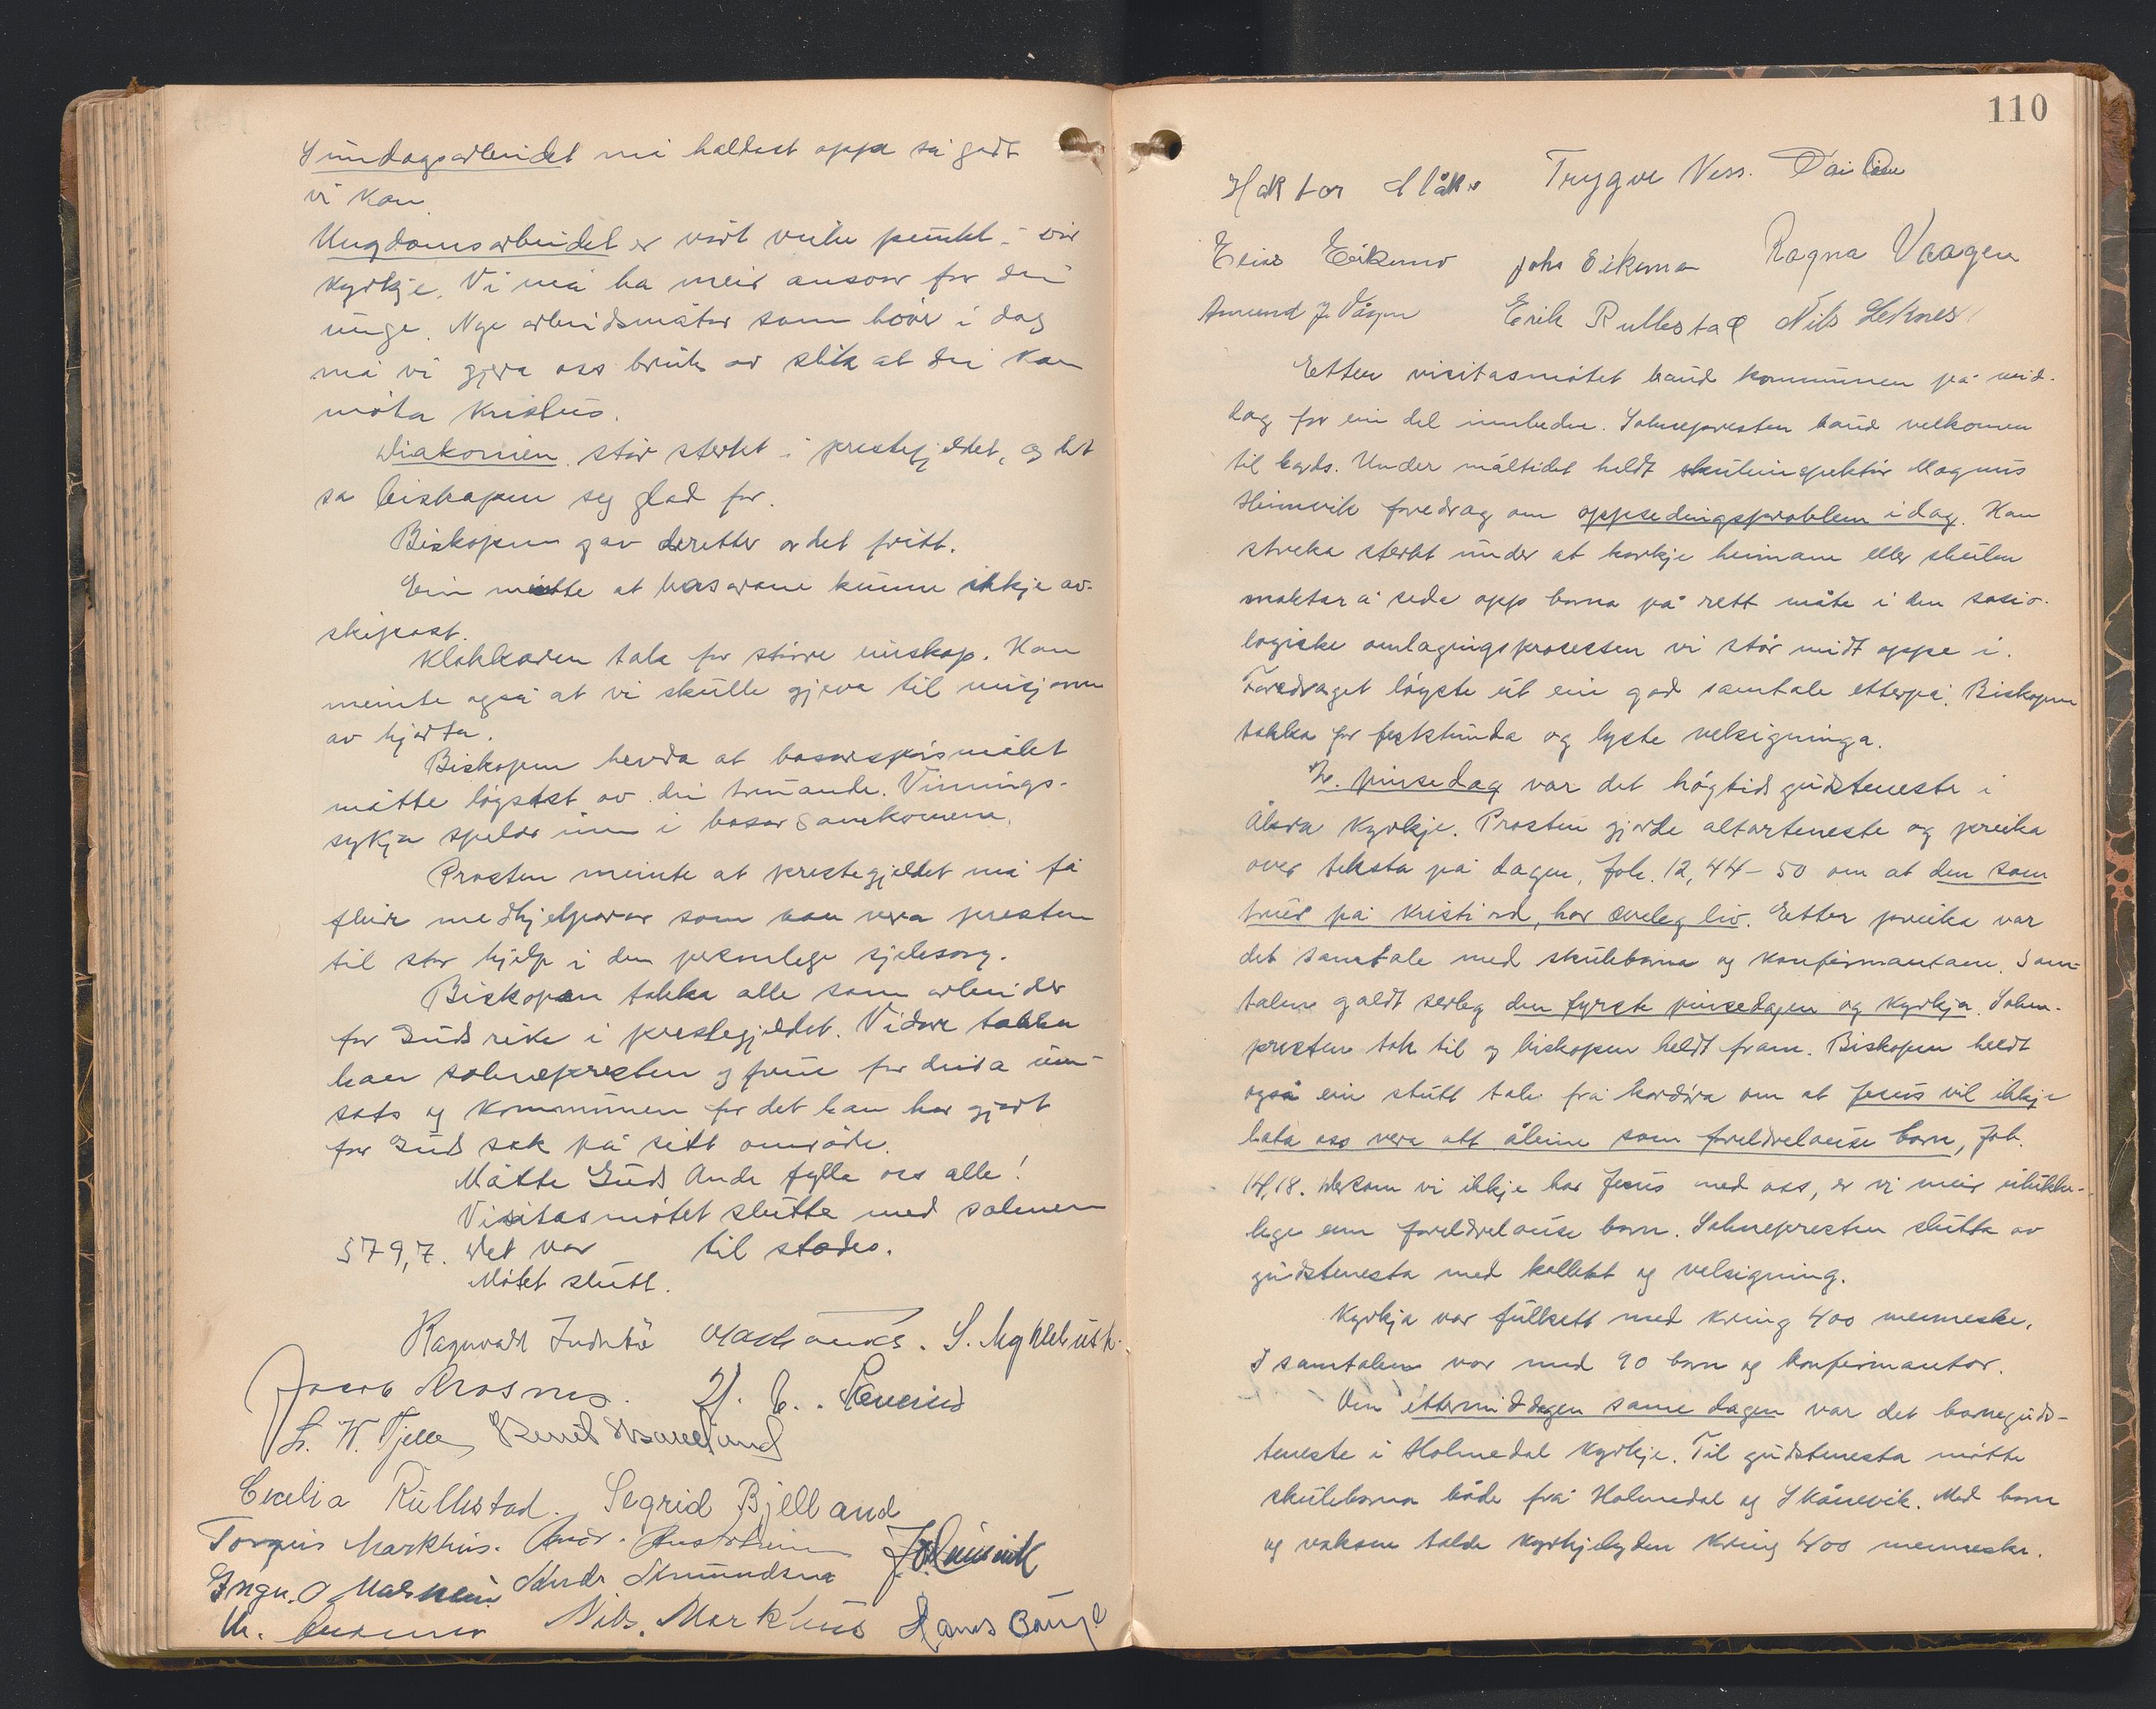 Sundagsarbeidet må haldast oppe så godt
vi kan.
Ungdomsarbeidet er vårt veike punkt i vår
kyrkje. Vi må ha meir ansvar for dei
unge. Nye arbeidsmåtar som høver i dag
må vi gjera oss bruk av slik at dei kan
møta Kristus.
Diakonien står sterkt i prestegjeldet, og det
sa biskopen seg glad for.
Biskopen gav deretter ordet fritt.
Ein meinte at basarane kunne ikkje av-
skipast.
Klokkaren tala for større einskap. Han
meinte også at vi skulle gjeva til misjonen
av hjarta.
Biskopen hevda at basarspørsmålet
måtte løysast av dei truande. Vinnings-
sykja spelar inn i basarsamkomene.
Prosten meinte at prestegjeldet må få
fleir medhjelparar som kan vera presten
til stor hjelp i den personlege sjelesorg.
Biskopen takka alle som arbeider
for Guds rike i prestegjeldet. Vidare takka
han soknepresten og frue for deira inn-
sats og kommunen for det han har gjort
for Guds sak på sitt område.
Måtte Guds Ande fylla oss alle!
Visitasmøtet slutta med salmen
579,7. Det var til stades.
Møtet slutt.
Ragnvald Indrebø S. Myklebust.
Jacob Krosnes.
L. W. Fjelle
Cecilia Rullestad. Segrid Bjelland
Torgeis Markhus.
Nils. Markhus Hans
110
Trygve Ness.
John Eikemo Ragna Vaagen
Amund J. Vågen Erik Rullestad Nils Leknes
Etter visitasmøtet baud kommunen på mid-
dag for ein del innbedne. Soknepresten baud velkomen
til bords. Under måltidet heldt skuleinspektør Magnus
Heimvik foredrag om oppsedingsproblem i dag. Han
streka sterkt under at korkje heimane eller skulen
maktar å seda opp borna på rett måte i den sosio-
logiske omlagingsprosessen vi står midt oppe i.
Foredraget løyste ut ein god samtale etterpå. Biskopen
takka for festktunda og lyste velsigninga.
2. pinsedag var det høgtidsgudsteneste i
Åkra kyrkje. Prosten gjorde altarteneste og preika
over teksta på dagen, Joh. 12,44-50 om at den som
trur på Kristi ord, har æveleg liv. Etter preika var
det samtale med skuleborna og konfirmantane. Sam-
talen galdt serleg den fyrste pinsedagen og kyrkja. Sokne-
presten tok til og biskopen heldt fram. Biskopen heldt
også ein stutt tale frå kordøra om at Jesus vil ikkje
lata oss vera att åleine som foreldrelause born, Joh.
14,18. Dersom vi ikkje har Jesus med oss, er vi meir ulukke-
lege enn foreldrelause born. Soknepresten slutta av
gudstenesta med kollekt og velsigning.
Kyrkja var fullsett med kring 400 menneske.
I samtalen var med 90 born og konfirmantar.
Om ettermiddagen same dagen var det barneguds-
teneste i Holmedal kyrkje. Til gudstenesta møtte
skuleborna både frå Holmedal og Skånevik. Med born
og vaksne talde kyrkjelyden kring 400 menneske.